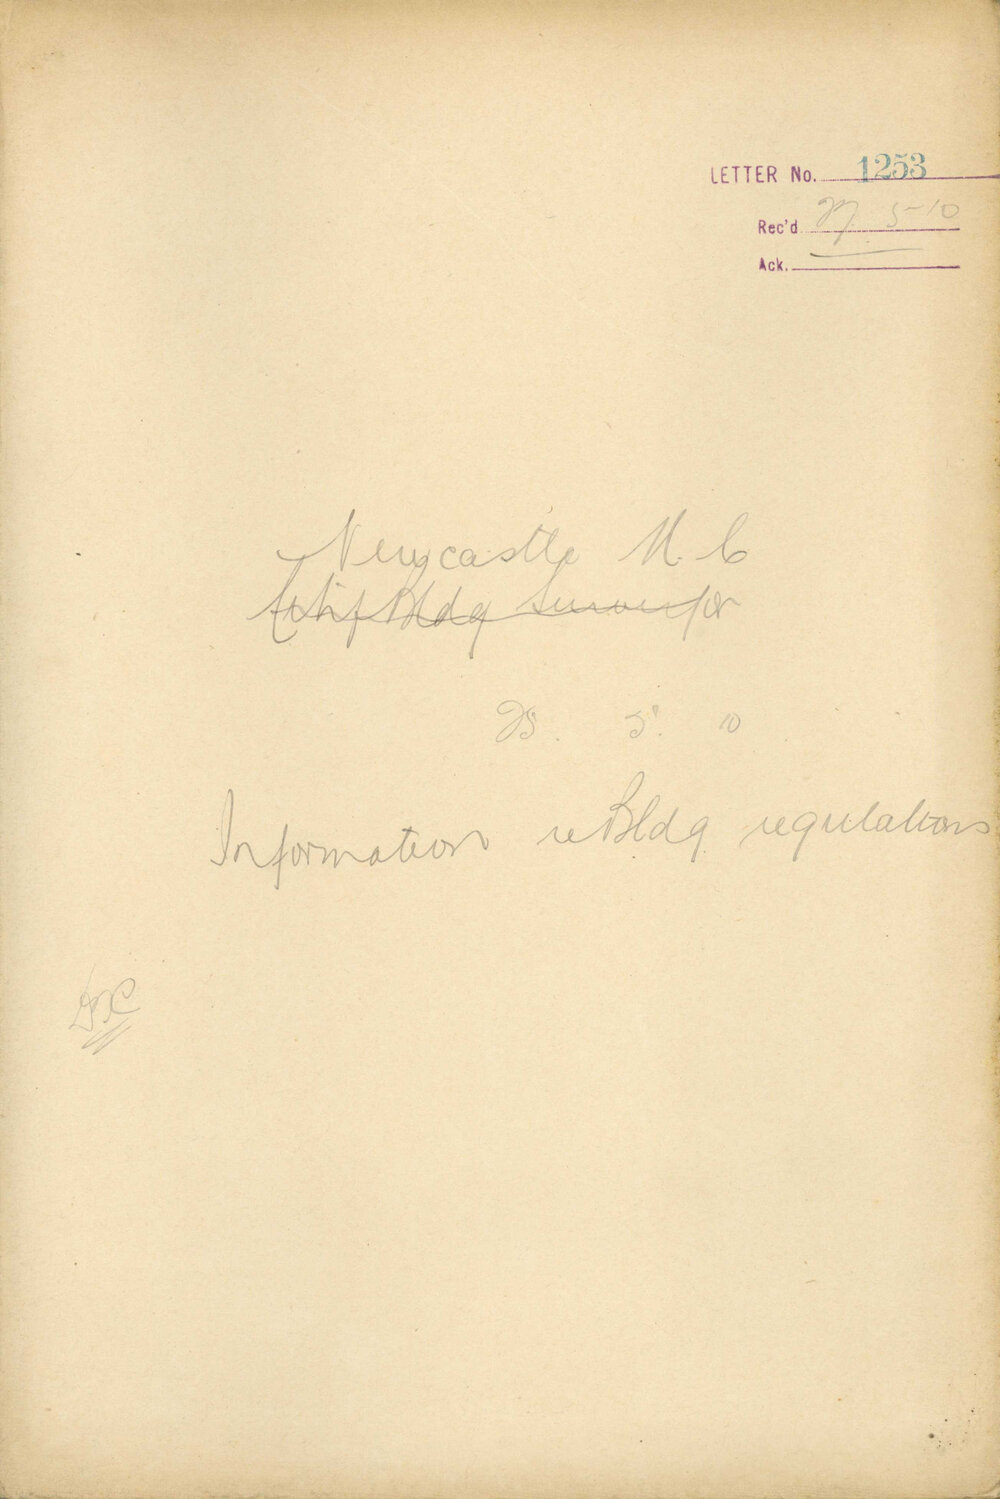 LETTER No. 1253
Rec'd 27 5-10
Ack.
Newcastle M. C
Bldg Surveyor
25. 5. 10
Information re Bldg regulations